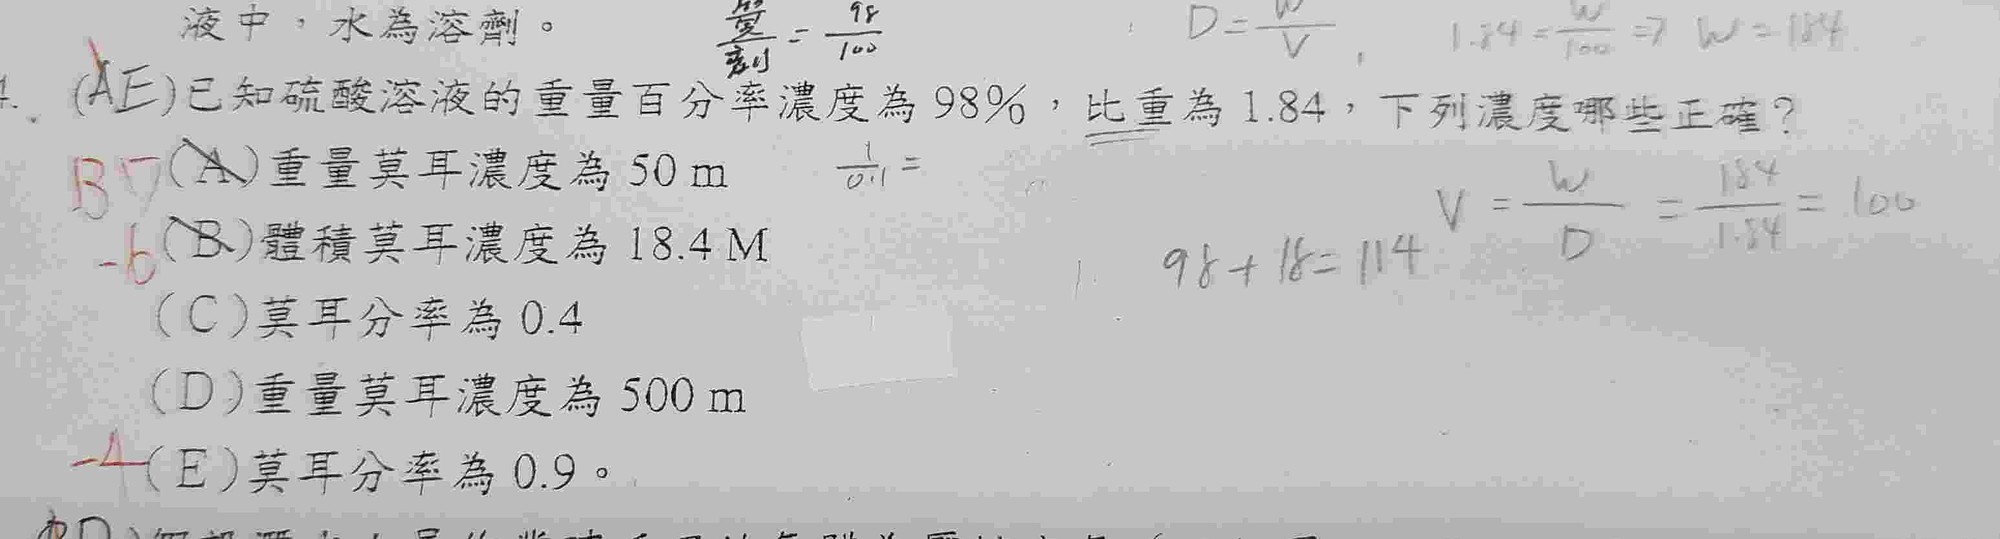 液中，水為溶劑。
質量/劑 = 98/100
D = W/V , 1.84 = W/100 ⇒ W = 184
(AE)已知硫酸溶液的重量百分率濃度為 98%，比重為 1.84，下列濃度哪些正確？
(A)重量莫耳濃度為 50 m
1/0.1 =
V = W/D = 184/1.84 = 100
(B)體積莫耳濃度為 18.4 M
-6
98 + 18 = 114
(C)莫耳分率為 0.4
(D)重量莫耳濃度為 500 m
-4
(E)莫耳分率為 0.9。